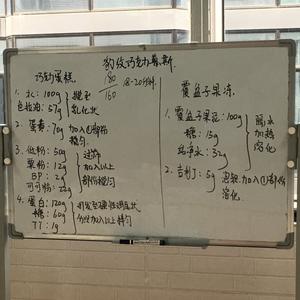 豹纹巧克力慕斯
180/160 18-20分钟
巧巧蛋糕
1. 水：100g 搅至
色拉油：67g 乳化状
2. 蛋黄：70g 加入①部份
搅匀
3. 低粉：50g 过筛
粟粉：12g 加入以上
BP：2g 部份搅匀
可可粉：22g
4. 蛋白：120g 打发至硬性湿发状
糖：60g 分次加入以上拌匀
TT：1g
覆盆子果冻
1. 覆盆子果茸：100g 隔水
糖：15g 加热
纯净水：32g 溶化
2. 吉利丁：5g 泡软加入①部份
溶化